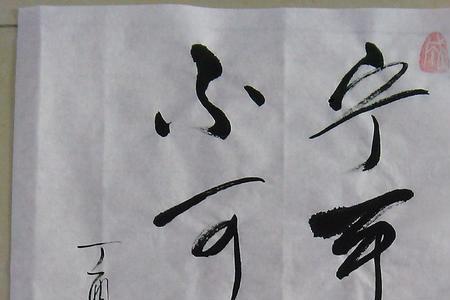 宁可
不可
丁酉